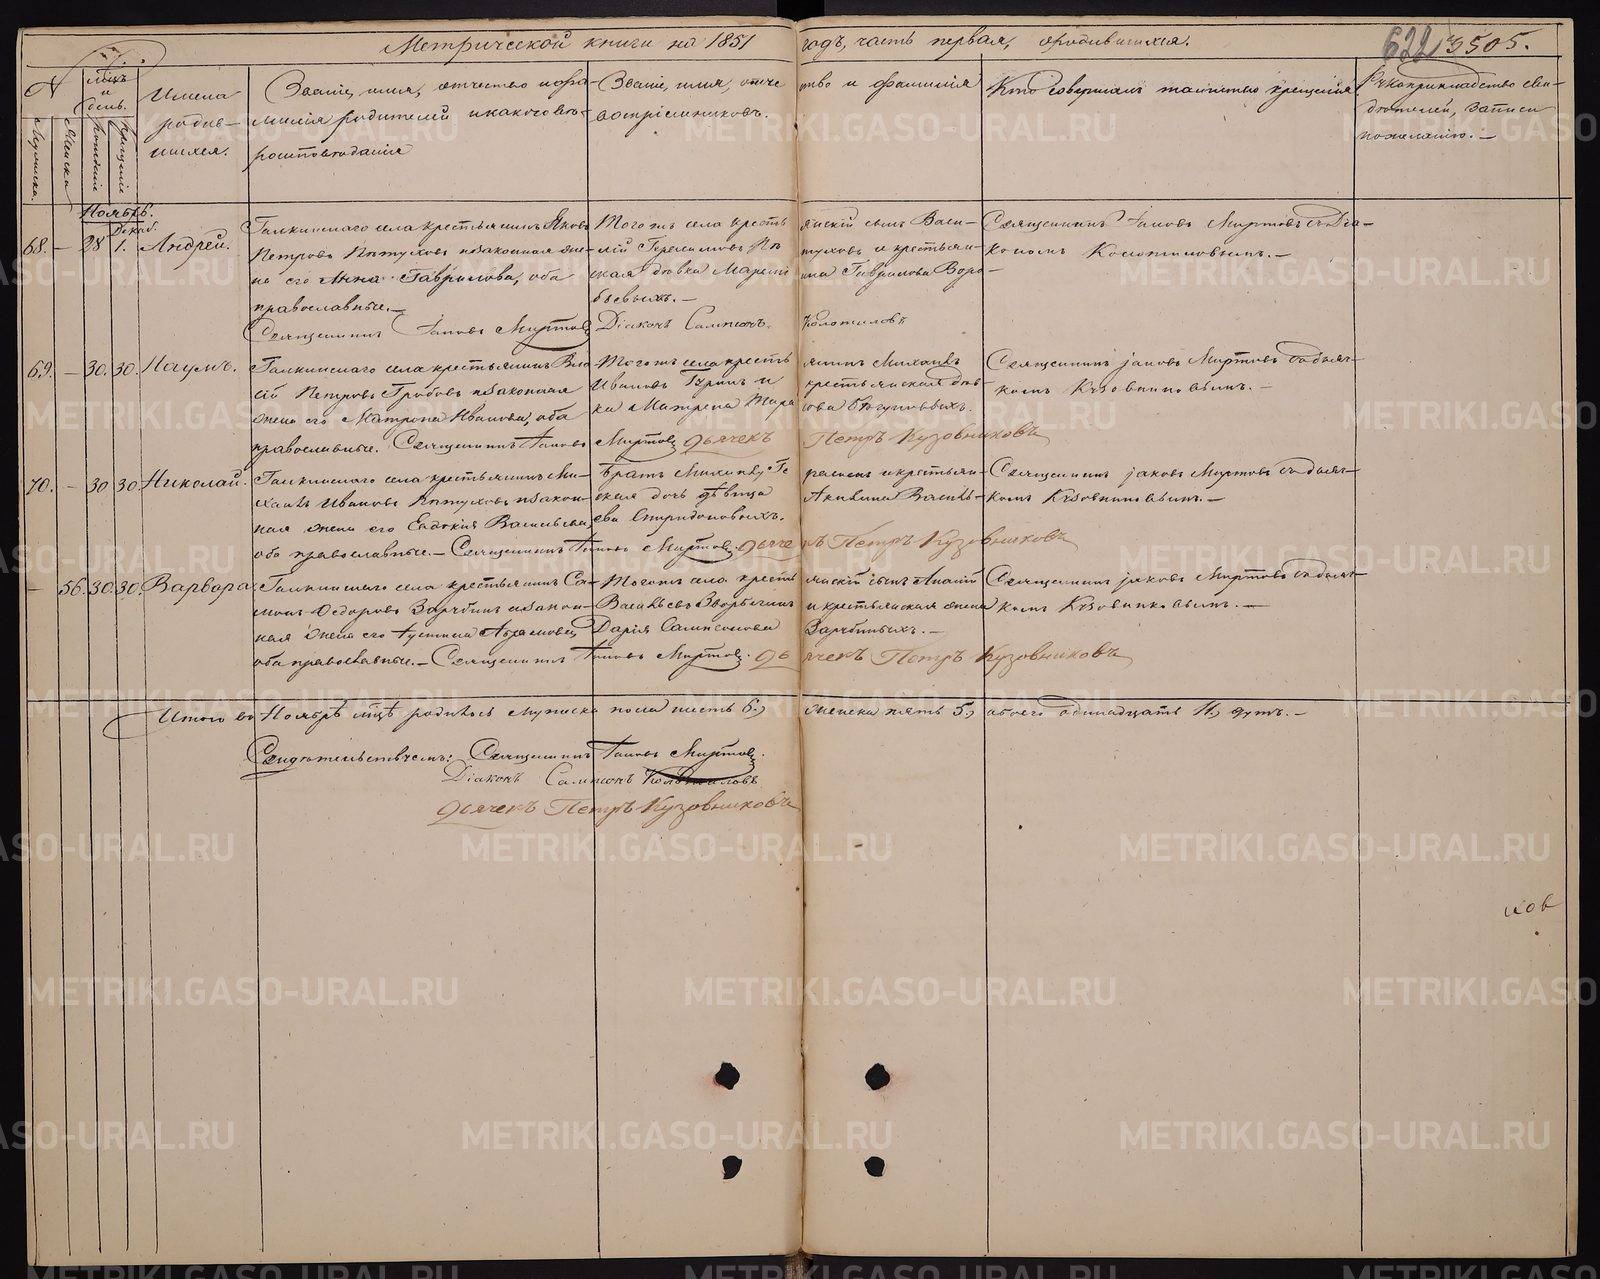 Метрической книги на 1851 годъ, часть первая, о родившихся.
622 3505.
Имена родив- шихся.
Званіе, имя, отчество и фа-
милія родителей и какого вѣ-
роисповѣданія
Званіе, имя, отче ство и фамилія
воспріемниковъ.
Кто совершалъ таинство крещенія
Рукоприкладство сви-
дѣтелей записи
по желанію. —
Мѣсяцъ и день.
Ноябрь.
Декаб.
68. — 28 1. Андрей.
Галкинскаго села крестьянинъ Яковъ
Петровъ Пѣтуховъ и законная же-
на его Анна Гаврилова, оба
православные. —
Священникъ Іаковъ Миртовъ
Тогожъ села кресть янскій сынъ Васи-
лій Герасимовъ Пѣ туховъ и крестьян-
ская дѣвка Марѳа Гаврилова Воро-
бьевыхъ. —
Діаконъ Сампсонъ Колотиловъ
Священникъ Іаковъ Миртовъ съ Діа-
кономъ Колотиловымъ. —
69. — 30. 30. Наумъ.
Галкинскаго села крестьянинъ Вла-
сій Петровъ Гробовъ и законная
жена его Матрона Иванова, оба
православные. Священникъ Іаковъ Миртовъ Дьячекъ Петръ Кузовниковъ
Тогожъ села кресть янинъ Михаилъ
Ивановъ и крестьянская дѣв-
ка Матрена
Священникъ Іаковъ Миртовъ съ дьяч-
комъ Кузовниковымъ. —
70. — 30 30 Николай.
Галкинскаго села крестьянинъ Ми-
хаилъ Ивановъ Пѣтуховъ и закон-
ная жена его Евдокія Васильева,
оба православные. — Священникъ Іаковъ Миртовъ. Дьячекъ Петръ Кузовниковъ
и крестьян-
ская дочь дѣвица Акилина Василь-
ева Спиридоновыхъ.
Священникъ Іаковъ Миртовъ съ дьяч-
комъ Кузовниковымъ. —
— 56. 30. 30. Варвара
Галкинскаго села крестьянинъ Са-
мсонъ Ѳедоровъ и закон-
ная жена его Устинья
оба православные. — Священникъ Іаковъ Миртовъ. Дьячекъ Петръ Кузовниковъ
Тогожъ села кресть янскій сынъ
Васильевъ и крестьянская жена
Дарія Сампсонова
Священникъ Іаковъ Миртовъ съ дьяч-
комъ Кузовниковымъ. —
Итого въ Ноябрѣ мцѣ родилось мужеска пола шесть 6, женска пять 5, обоего одинадцать 11, душъ. —
Свидѣтельствуемъ: Священникъ Іаковъ Миртовъ.
Діаконъ Сампсонъ Колотиловъ
Дьячекъ Петръ Кузовниковъ
ков
METRIKI.GASO-URAL.RU